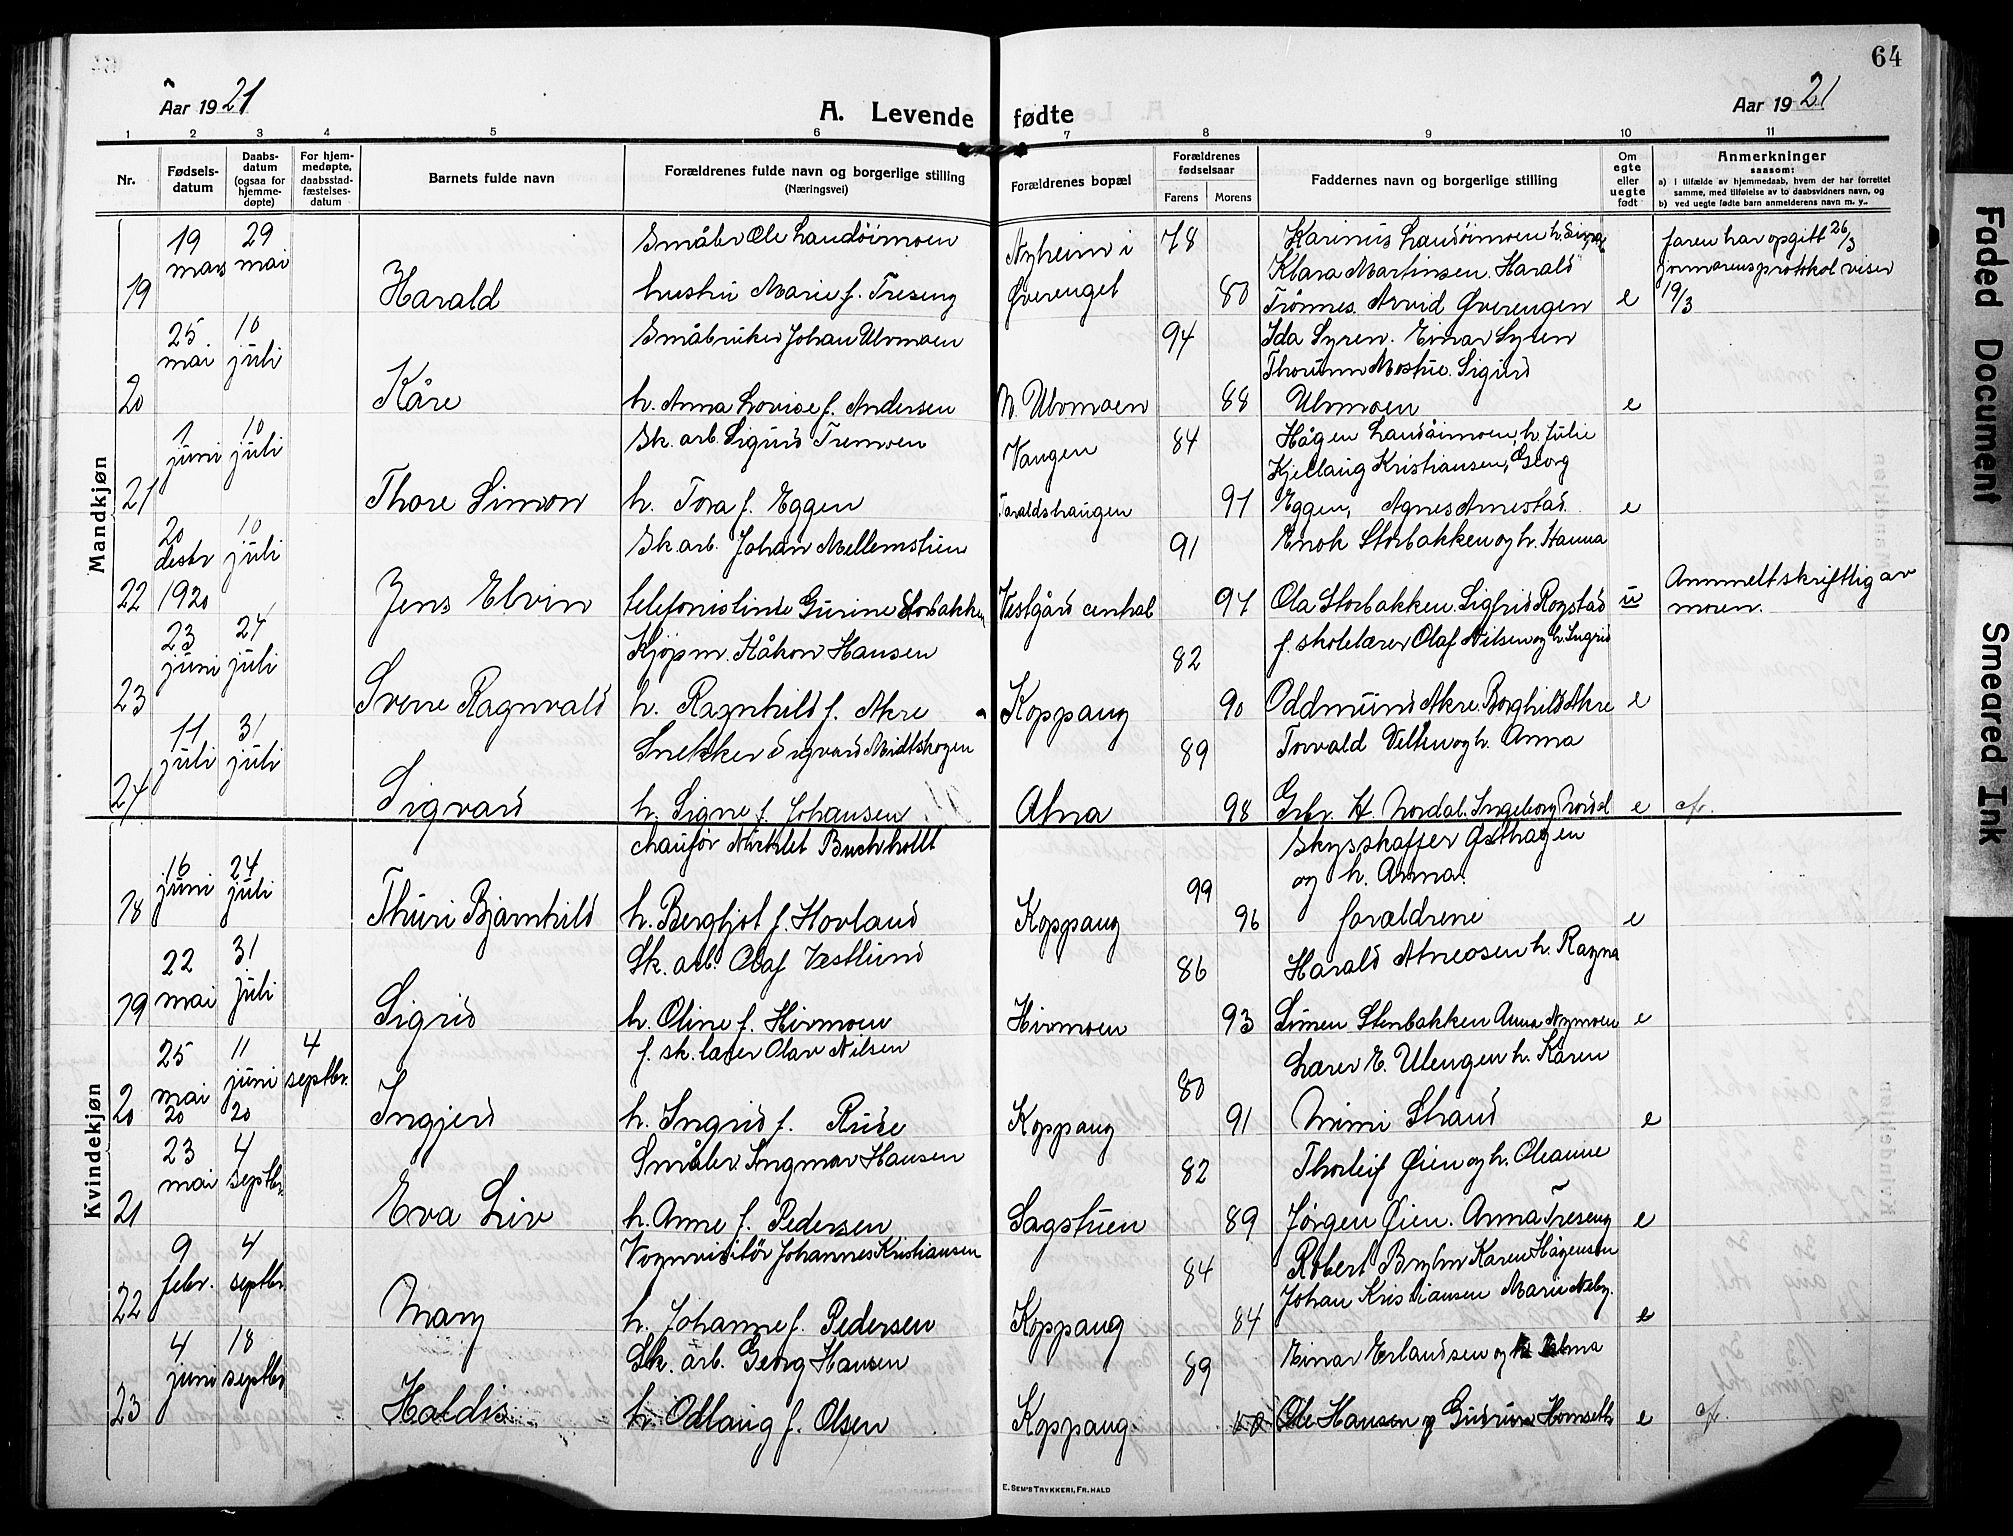 64
Aar 1921
A. Levende fødte
Aar 1921
1 2 3 4 5 6 7 8 9 10 11
Nr.
Fødsels-
datum
Daabs-
datum
(ogsaa for
hjemme-
døpte)
For hjem-
medøpte,
daabsstad-
fæstelses-
datum
Barnets fulde navn
Forældrenes fulde navn og borgerlige stilling
(Næringsvei)
Forældrenes bopæl
Forældrenes
fødselsaar
Farens Morens
Faddernes navn og borgerlige stilling
Om
egte
eller
uegte
født
Anmerkninger
saasom:
a) i tilfælde av hjemmedaab, hvem der har forrettet
samme, med tilføielse av to daabsvidners navn, og
b) ved uegte fødte barn anmelderens navn m. y..
Mandkjøn
19 mars 29 mai Småbr Ole Landåimoen Nyheim i 78 Karinus Landåimoen h. faren har opgitt 26/3
Klara Martinsen. Harald jormorens protokol viser
19 Harald hustru Marie f. Treseng Øverenget 80 Trønnes. Arvid Øverengen e 19/3
25 mai 10 juli Småbruker Johan Ulvmoen 94 Ida Syren. Einar Syren
Thorunn Mostue. Sigurd
20 Kåre h. Anna Lovise f. Andersen N. Ulvmoen 88 Ulvmoen e
1 juni 10 juli Sk. arb. Sigurd Tremoen Vangen 84 Hågen Landåimoen, h. Julie
Kjellaug Kristiansen, Georg
21 Thore Simon h. Tora f. Eggen Taraldshaugen 91 Eggen, Agnes Arnestad. e
20 desbr 10 juli Sk. arb. Johan Mellemstuen 91 Enok Storbakken og h. Hanna
Anmeldt skriftlig av
22 1920 Jens Elvin telefonistinde Gurine Storbakken Vestgård central 94 Ola Storbakken. Sigfrid Rogstad u moren.
23 juni 24 juli Kjøpm. Håkon Hansen 82 f. skolelærer Olaf Nilsen og h. Ingrid
23 Sverre Ragnvald h. Ragnhild f. Akre Koppang 90 Oddmund Akre. Borghild Akre e
11 juli 31 juli Snekker Sigvard Midtskogen 89 Torvald Velten og h. Anna
24 Sigvard h. Signe f. Johansen Atna 98 Gbr. H. Nordal. Ingeborg Nordal e cfr.
Kvindekjøn
16 juni 24 juli chaufør Nickles Buchholdt 99 Skysskaffer Østhagen
og h. Anna.
18 Thuri Bjarnhild h. Bergljot f. Hovland Koppang 96 forældrene e
22 mai 31 juli Sk. arb. Olaf Vestlund 86 Harald Atneosen h. Ragna
19 Sigrid h. Oline f. Hirmoen Hirmoen 93 Simen Stenbakken Anna Nymoen e
25 mai 20 11 juni 20 4 septbr. f. sk. lærer Olav Nilsen 80 Lærer E. Ulengen h. Karen
20 Ingjerd h. Ingrid f. Rude Koppang 91 Mimi Strand e
23 mai 4 septbr. Småbr. Ingmar Hansen 82 Thorleif Øien og h. Oleanne
21 Eva Liv h. Anne f. Pedersen Sagstuen 89 Jørgen Øien. Anna Treseng e
9 febr. 4 septbr. Vognvisitør Johannes Kristiansen 84 Robert Bryhn Karen Hågensen
Johan Kristiansen Marie Neby.
22 Mary h. Johanne f. Pedersen Koppang 84 e
4 juni 18 septbr Sk. arb. Georg Hansen 89 Einar Erlandsen og
23 Haldis h. Odlaug f. Olsen Koppang Ole Hansen og Gudrun Homseth e cfr.
E. SEM'S TRYKKERI, FR. HALD
Faded Document
Smeared Ink